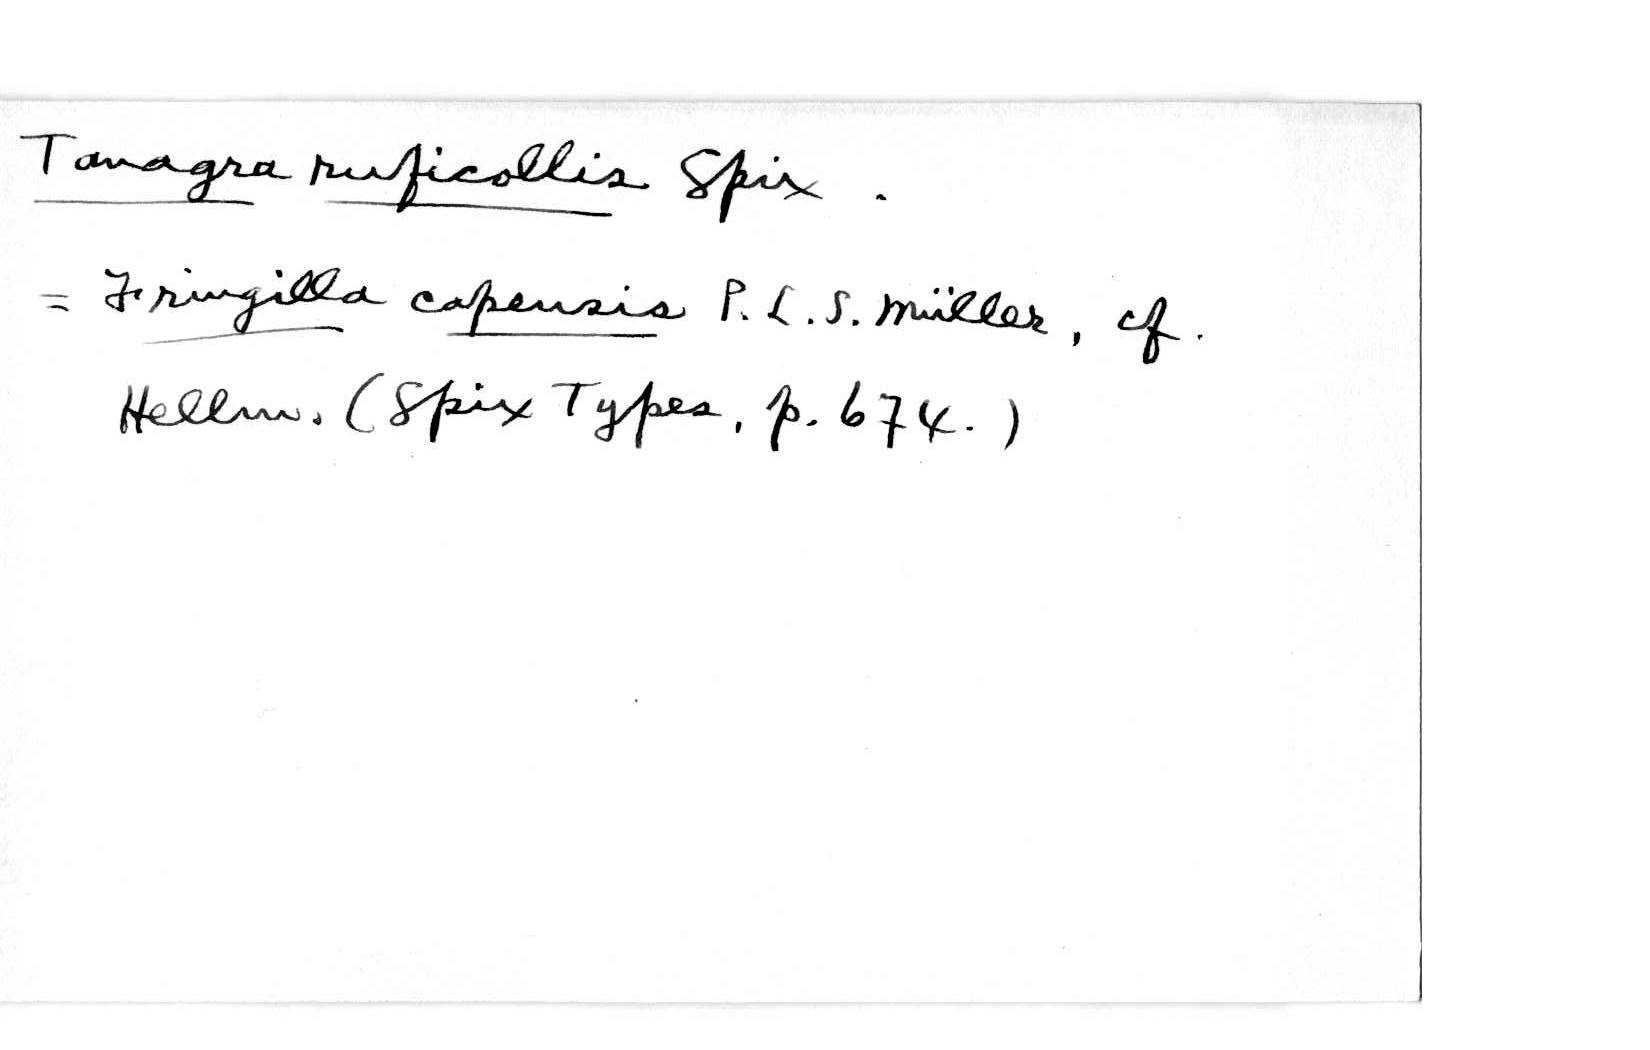 Tanagra ruficollis Spix.
= Fringilla capensis P. L. S. Müller, cf.
Hellm. (Spix Types, p. 674.)